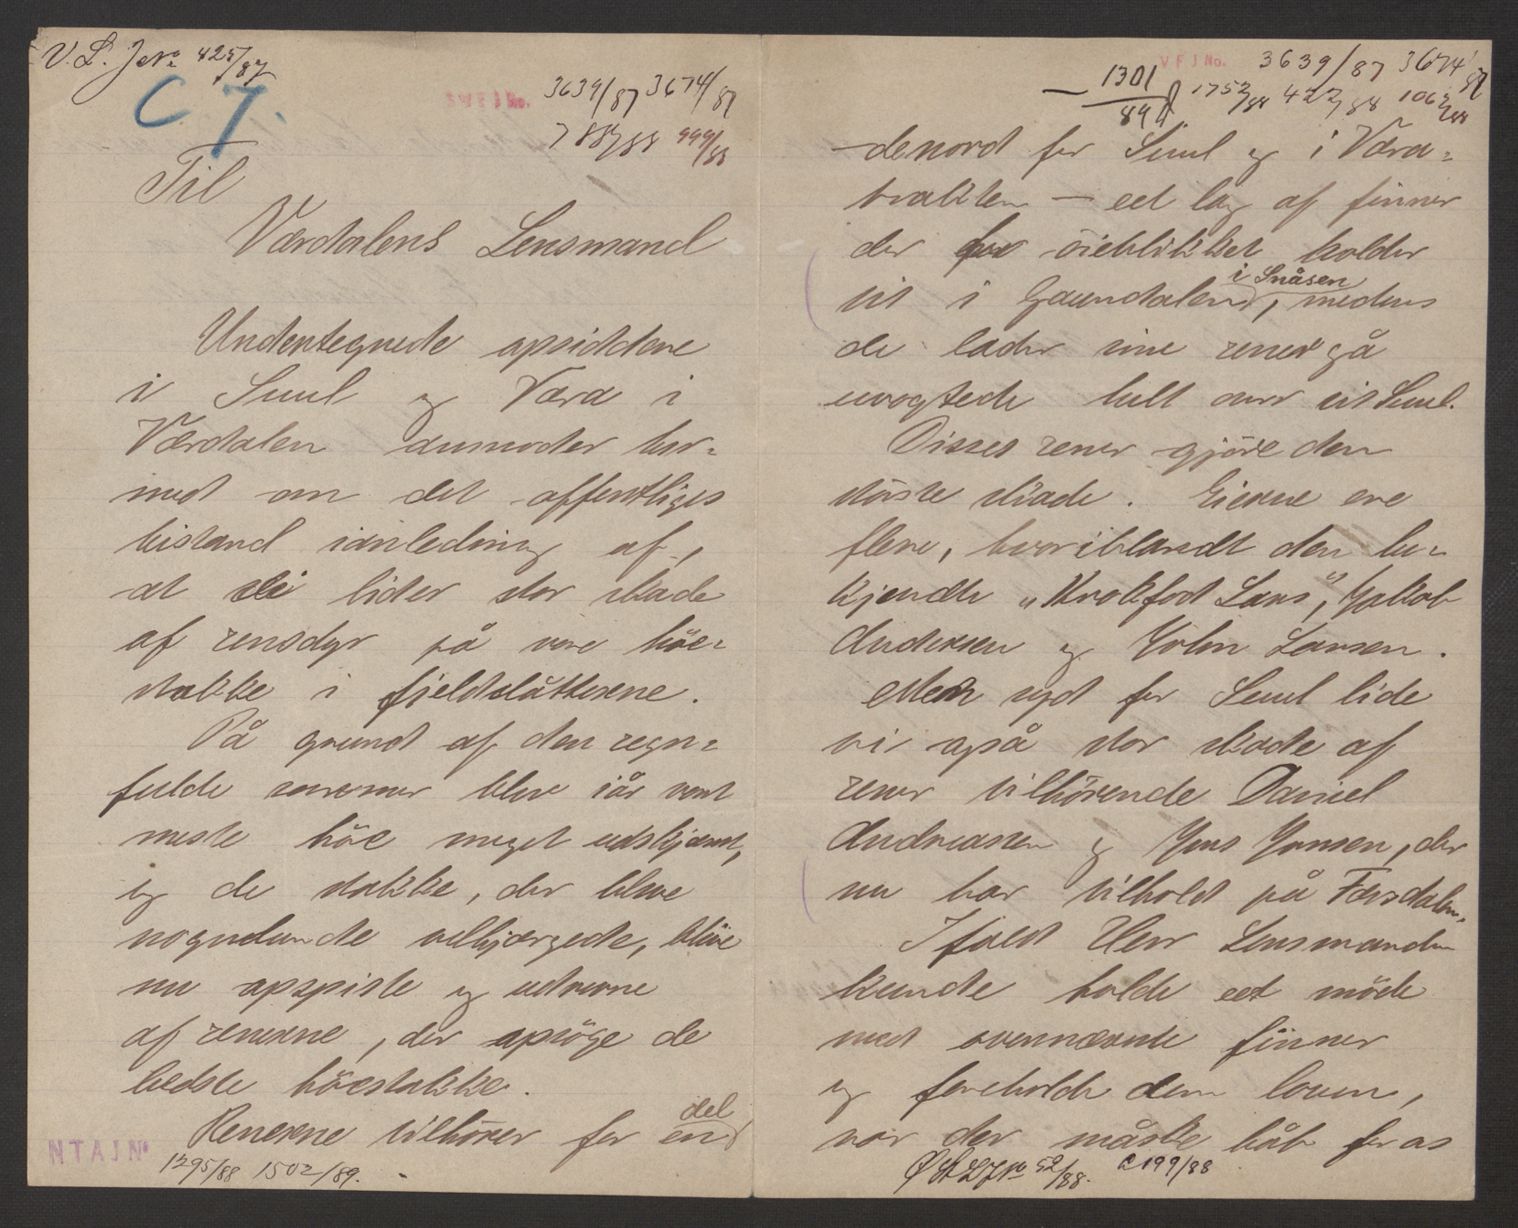 V. L. J.No. 425/87
C 7.
3639/87 3674/87
788/88 999/88
Til
Værdalens Lensmand
Undertegnede opsiddere
i Suul og Væra i
Værdalen anmoder her-
med om det offentliges
bistand ianledning af,
at vi lider stor skade
af rensdyr på vore höe-
stakke i fjeldslåtterne.
På grund af den regn-
fulde sommer blev iår vort
meste höe meget udskjæmt,
og de stakke, der bleve
nogenlunde velbjærgede, blive
nu opspiste og udrevne
af renerne, der opsöge de
bedste höestakke.
Renerne tilhörer for en del
NTAJNo
1295/88 1502/89.
VFJNo. 3639/87 3674/87
1301/89 1752/88 422/88 106/88
denord for Suul og i Væra-
trakten — et lag af finner
der for öieblikket holder
til i Gaundalen i Snåsen, medens
de lader sine rener gå
uvogtede helt over til Suul.
Disses rener gjöre den
störste skade. Eierne ere
flere, hvoriblandt den be-
kjendte "Krokfod Lars", Jakob
Andersen og John Larsen.
Men syd for Suul lide
vi også stor skade af
rener tilhörende Daniel
Andreasen og Jens Jonsen, der
nu har tilhold på Færsdalen.
Ifald Herr Lensmanden
kunde holde et möde
med ovennævnte finner
og foreholde dem loven,
var der måske håb for os
ØstLJNo 52/88. C 199/88